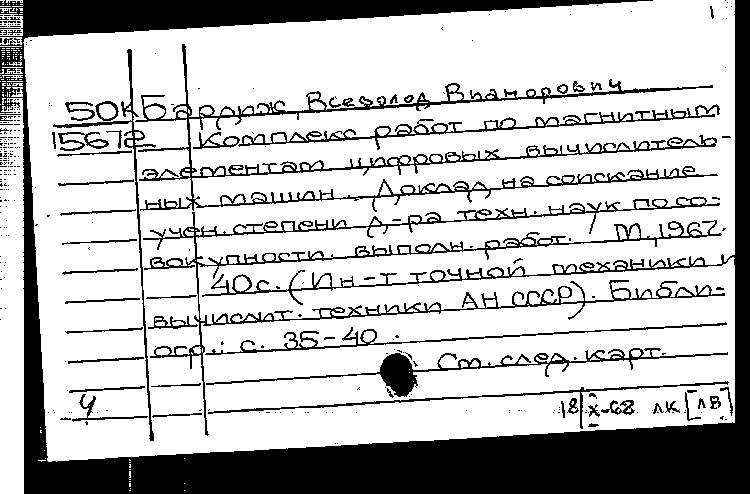 1
50к Бардиж, Всеволод Викторович
15672 Комплекс работ по магнитным
элементам цифровых вычислитель-
ных машин. Доклад на соискание
учен. степени д-ра техн. наук по со-
вокупности выполн. работ. М., 1967.
40 с. (Ин-т точной механики и
вычислит. техники АН СССР). Библи-
огр.: с. 35-40.
См. след. карт.
Ч
18/X-68 ЛК [ЛВ]